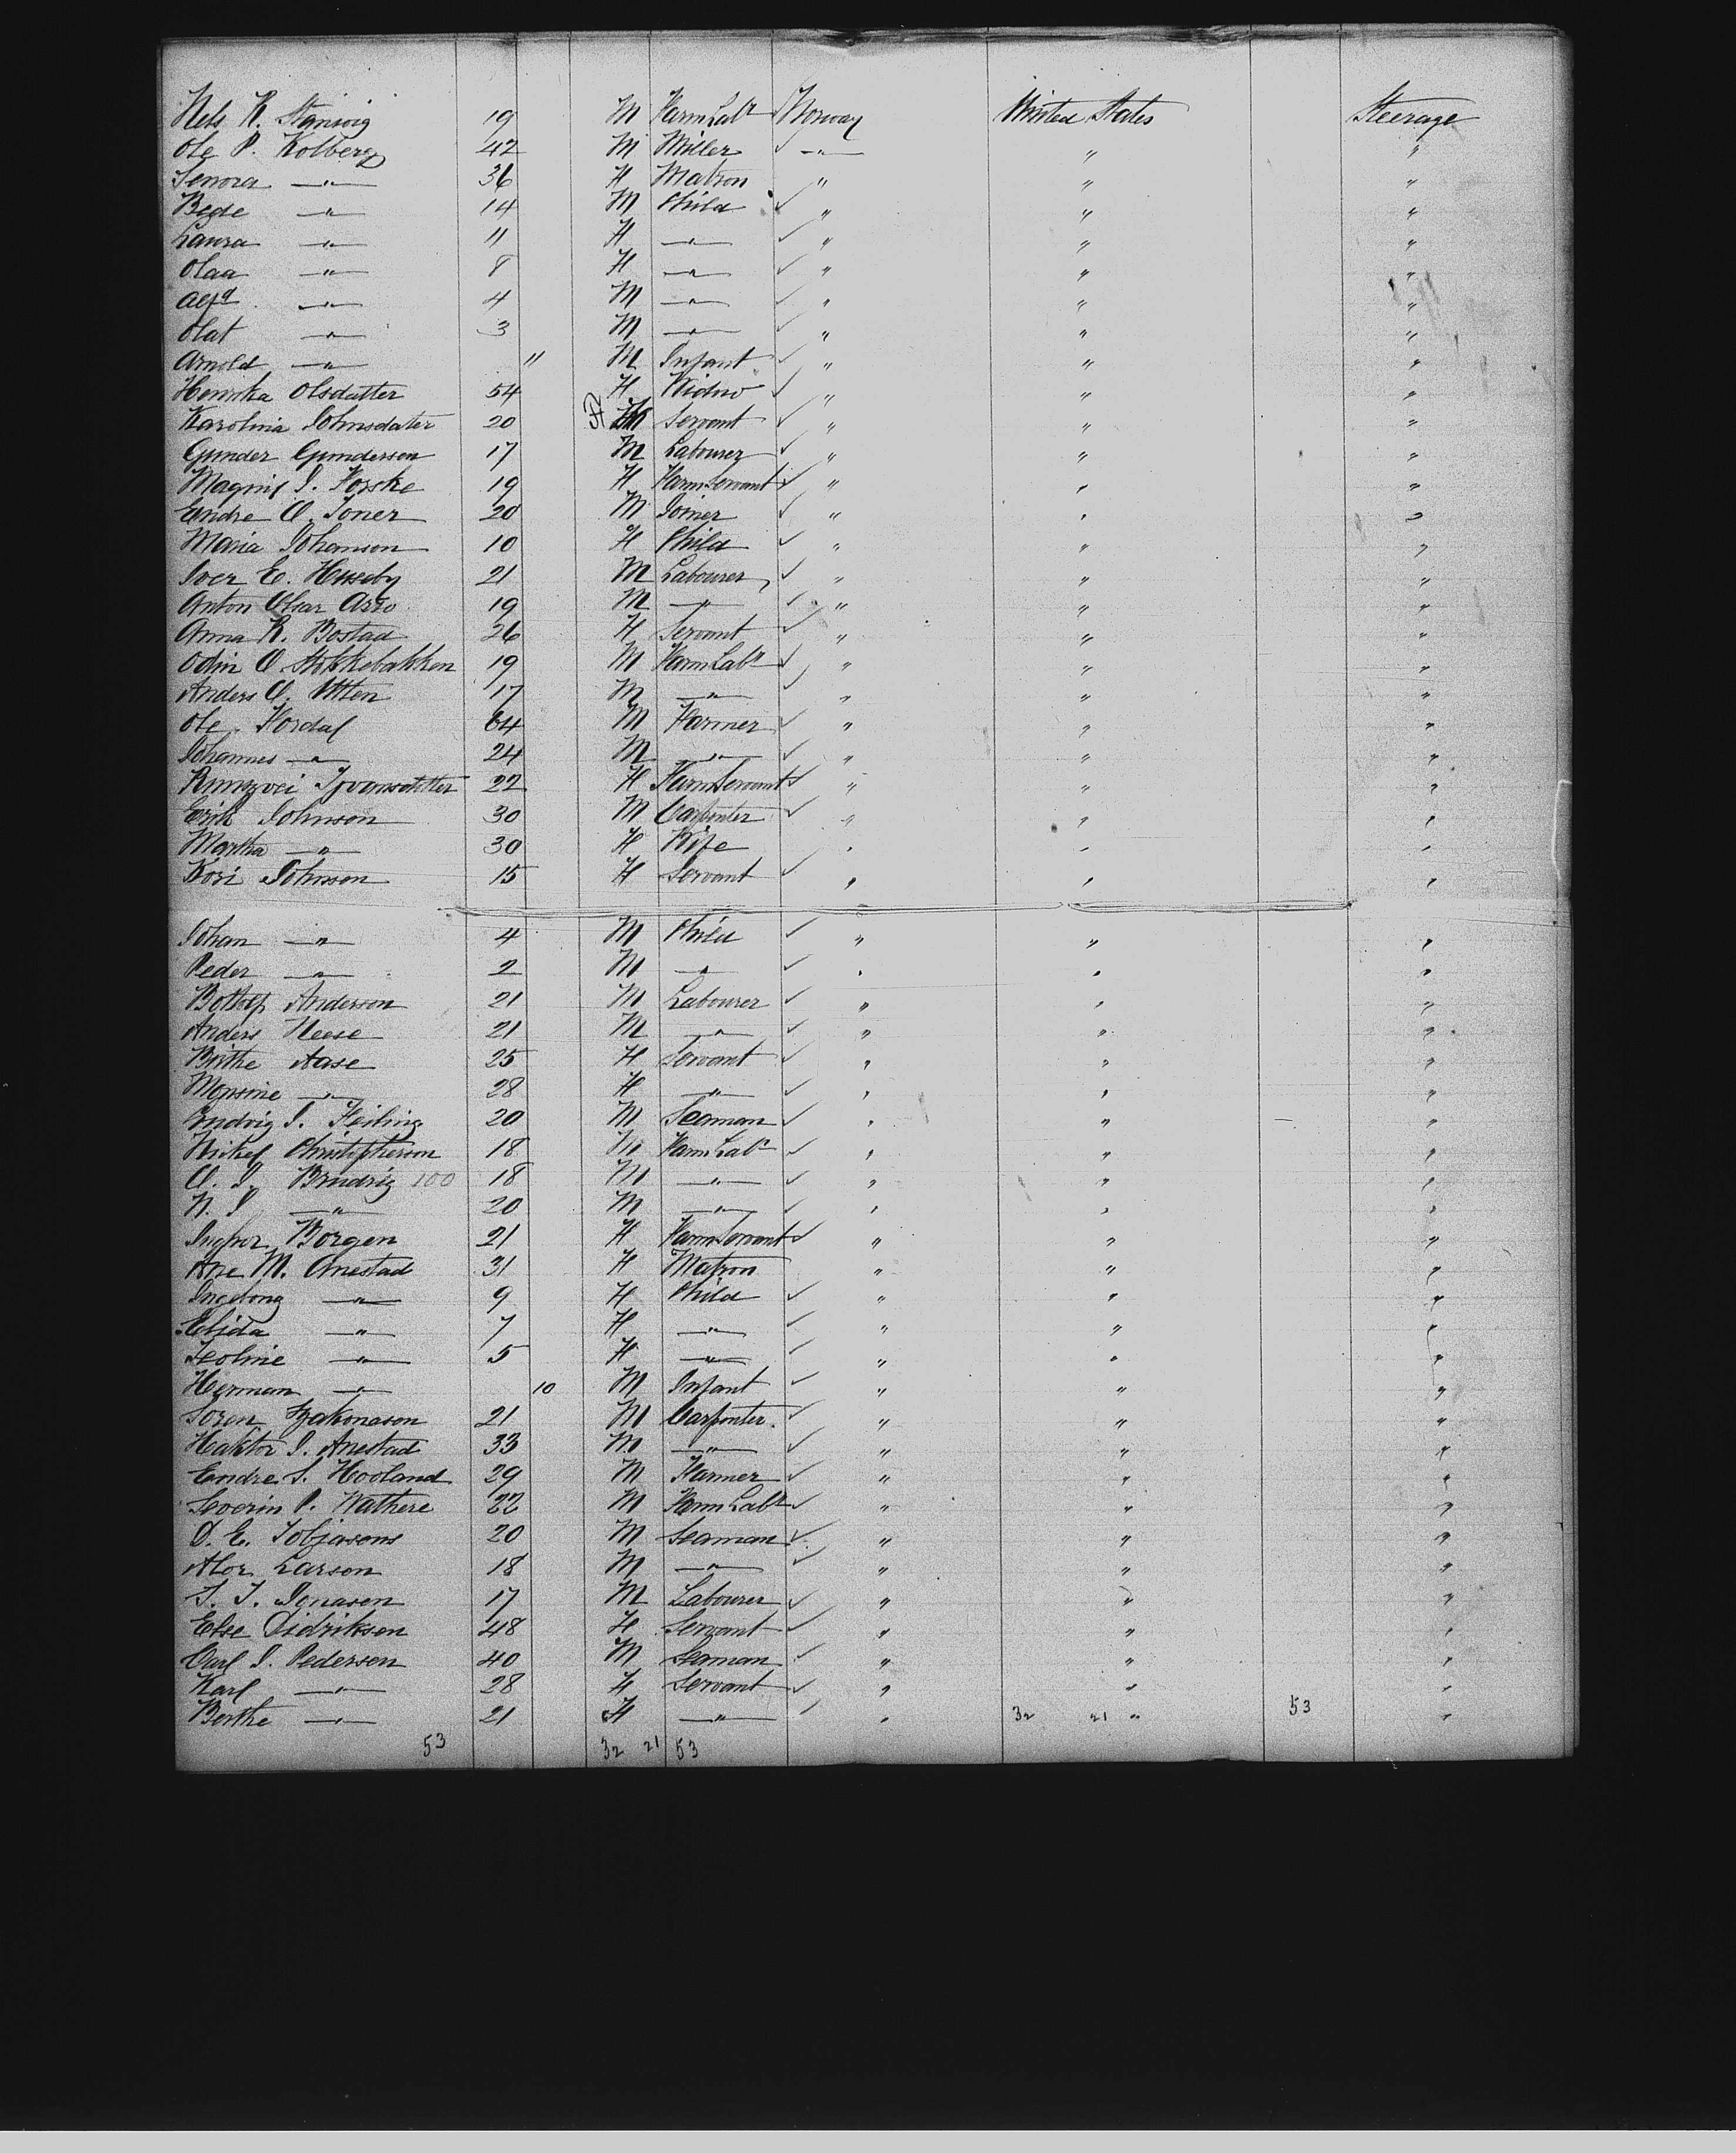 Nels R. Stanwig 19 M Farm Labr Norway United States Steerage
Ole P. Kolberg 42 M Miller ✓ —"— " "
Senora —"— 36 F Matron " " "
Bede —"— 14 M Child ✓ " " "
Laura —"— 11 F —"— ✓ " " "
Olaa —"— 8 F —"— ✓ " " "
Alfd —"— 4 M —"— ✓ " " "
Olat —"— 3 M —"— ✓ " " "
Arnold —"— 11 M Infant ✓ " " "
Henrika Olsdatter 54 F Widow ✓ " " "
Karolina Johnsdater 20 F Servant ✓ " " "
Gunder Gunderson 17 M Labourer ✓ " " "
Magnif J. Forske 19 F Farm Servant ✓ " " "
Endre O. Toner 20 M Joiner ✓ " " "
Maria Johanson 10 F Child ✓ " " "
Iver E. Huseby 21 M Labourer ✓ " " "
Anton Olsar Arro 19 M —"— ✓ " " "
Anna R. Bostad 26 F Servant ✓ " " "
Odin O. Stokkebakken 19 M Farm Labr ✓ " " "
Anders O. Utten 17 M —"— ✓ " " "
Ole Fordal 64 M Farmer ✓ " " "
Johannes —"— 24 M —"— ✓ " " "
22 F Farm Servant ✓ " " "
Erik Johnson 30 M Carpenter ✓ " " "
Martha —"— 30 F Wife " " "
Kori Johnson 15 F Servant ✓ " " "
Johan —"— 4 M Child ✓ " " "
Peder —"— 2 M —"— ✓ " " "
Bottolf Anderson 21 M Labourer ✓ " " "
Anders Neese 21 M —"— ✓ " " "
Brithe Aase 25 F Servant ✓ " " "
Monsine —"— 28 F —"— ✓ " " "
Ludvig J. Feiling 20 M Seaman ✓ " " "
Nickel Christopherson 18 M Farm Labr ✓ " " "
O. J. Brudvig 100 18 M —"— ✓ " " "
N. J. —"— 20 M —"— ✓ " " "
Ingbor Borgen 21 F Farm Servant ✓ " " "
Ane M. Anestad 31 F Matron " " "
Ingebong —"— 9 F Child ✓ " " "
Elida —"— 7 F —"— ✓ " " "
Teoline —"— 5 F —"— ✓ " " "
Herman —"— 10 M Infant ✓ " " "
Soren Hakonason 21 M Carpenter ✓ " " "
Haktor J. Anestad 33 M —"— ✓ " " "
Endre S. Hooland 29 M Farmer ✓ " " "
Severin P. Wathere 22 M Farm Labr ✓ " " "
O. E. Tobjasons 20 M Seaman ✓ " " "
Alor Larson 18 M —"— ✓ " " "
S. T. Jonasen 17 M Labourer ✓ " " "
Else Didriksen 48 F Servant ✓ " " "
Carl J. Pedersen 40 M Seaman ✓ " " "
Karl —"— 28 F Servant ✓ " " "
Berthe —"— 21 F —"— ✓ " 32 21 " 53 "
53 32 21 53